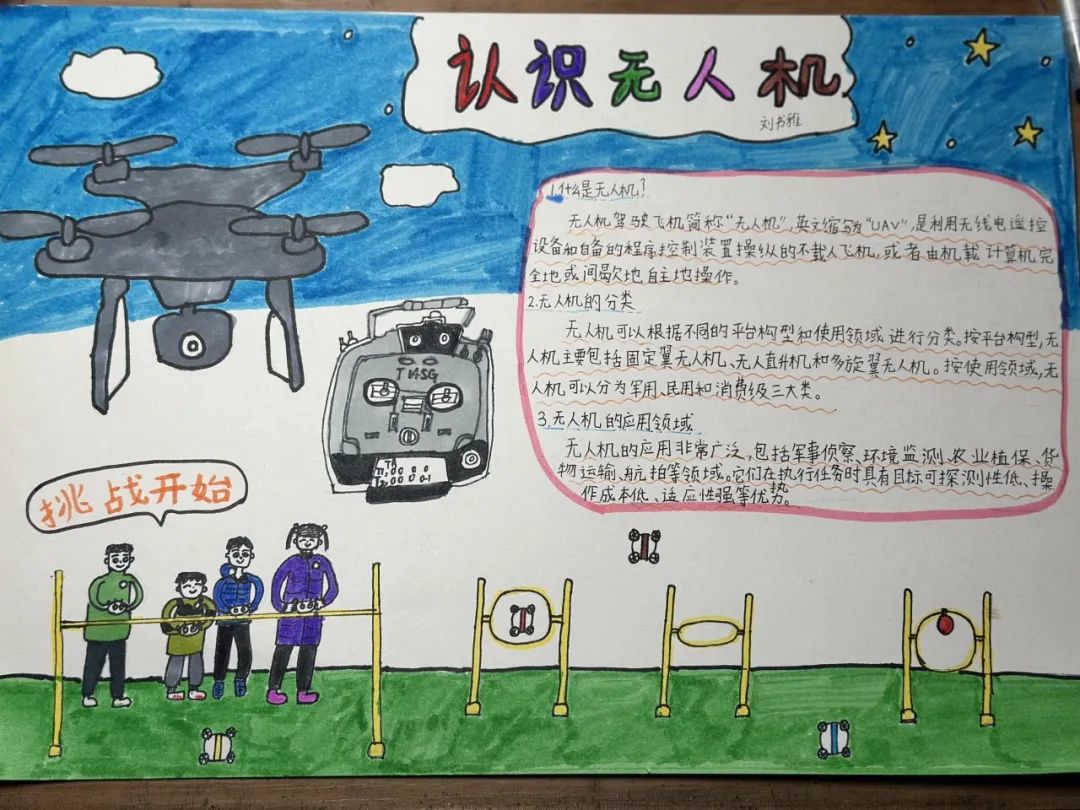 认识无人机
刘书雅
1.什么是无人机?
无人机驾驶飞机简称“无人机”,英文缩写为“UAV”,是利用无线电遥控
设备和自备的程序控制装置操纵的不载人飞机,或者由机载计算机完
全地或间歇地自主地操作。
2.无人机的分类
无人机可以根据不同的平台构型和使用领域进行分类。按平台构型,无
人机主要包括固定翼无人机、无人直升机和多旋翼无人机。按使用领域,无
人机可以分为军用、民用和消费级三大类。
3.无人机的应用领域
无人机的应用非常广泛,包括军事侦察、环境监测、农业植保、货
物运输、航拍等领域。它们在执行任务时具有目标可探测性低、操
作成本低、适应性强等优势。
T14SG
挑战开始